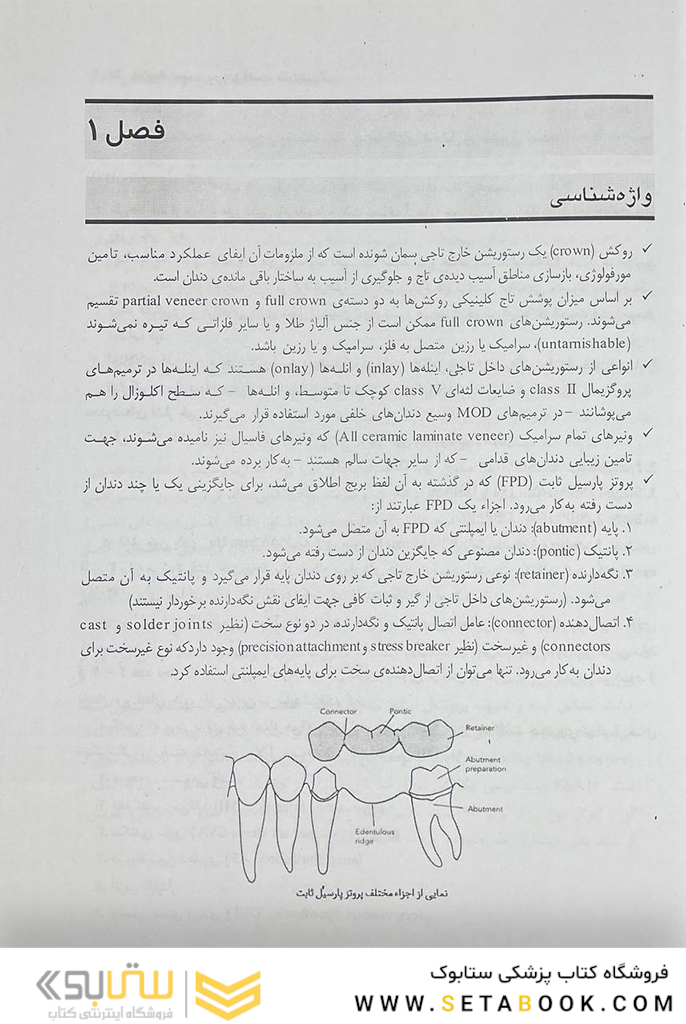 فصل ۱
واژه‌شناسی
✓ روکش (crown) یک رستوریشن خارج تاجی سمان شونده است که از ملزومات آن ایفای عملکرد مناسب، تامین
مورفولوژی، بازسازی مناطق آسیب دیده‌ی تاج و جلوگیری از آسیب به ساختار باقی مانده‌ی دندان است.
✓ بر اساس میزان پوشش تاج کلینیکی روکش‌ها به دو دسته‌ی full crown و partial veneer crown تقسیم
می‌شوند. رستوریشن‌های full crown ممکن است از جنس آلیاژ طلا و یا سایر فلزاتی که تیره نمی‌شوند
(untarnishable)، سرامیک یا رزین متصل به فلز، سرامیک و یا رزین باشد.
✓ انواعی از رستوریشن‌های داخل تاجی، اینله‌ها (inlay) و انله‌ها (onlay) هستند که اینله‌ها در ترمیم‌های
پروگزیمال class II و ضایعات لثه‌ای class V کوچک تا متوسط، و انله‌ها – که سطح اکلوزال را هم
می‌پوشانند – در ترمیم‌های MOD وسیع دندان‌های خلفی مورد استفاده قرار می‌گیرند.
✓ ونیرهای تمام سرامیک (All ceramic laminate veneer) که ونیرهای فاسیال نیز نامیده می‌شوند، جهت
تامین زیبایی دندان‌های قدامی – که از سایر جهات سالم هستند – به‌کار برده می‌شوند.
✓ پروتز پارسیل ثابت (FPD) که در گذشته به آن لفظ بریج اطلاق می‌شد، برای جایگزینی یک یا چند دندان از
دست رفته به‌کار می‌رود. اجزاء یک FPD عبارتند از:
۱. پایه (abutment): دندان یا ایمپلنتی که FPD به آن متصل می‌شود.
۲. پانتیک (pontic): دندان مصنوعی که جایگزین دندان از دست رفته می‌شود.
۳. نگه‌دارنده (retainer): نوعی رستوریشن خارج تاجی که بر روی دندان پایه قرار می‌گیرد و پانتیک به آن متصل
می‌شود. (رستوریشن‌های داخل تاجی از گیر و ثبات کافی جهت ایفای نقش نگه‌دارنده برخوردار نیستند)
۴. اتصال‌دهنده (connector): عامل اتصال پانتیک و نگه‌دارنده، در دو نوع سخت (نظیر solder joints و cast
connectors) و غیرسخت (نظیر stress breaker و precision attachment) وجود دارد که نوع غیرسخت برای
دندان به‌کار می‌رود. تنها می‌توان از اتصال‌دهنده‌ی سخت برای پایه‌های ایمپلنتی استفاده کرد.
Connector
Pontic
Retainer
Abutment
preparation
Abutment
Edentulous
ridge
نمایی از اجزاء مختلف پروتز پارسیل ثابت
فروشگاه کتاب پزشکی ستابوک
WWW.SETABOOK.COM
ستابوک
فروشگاه اینترنتی کتاب